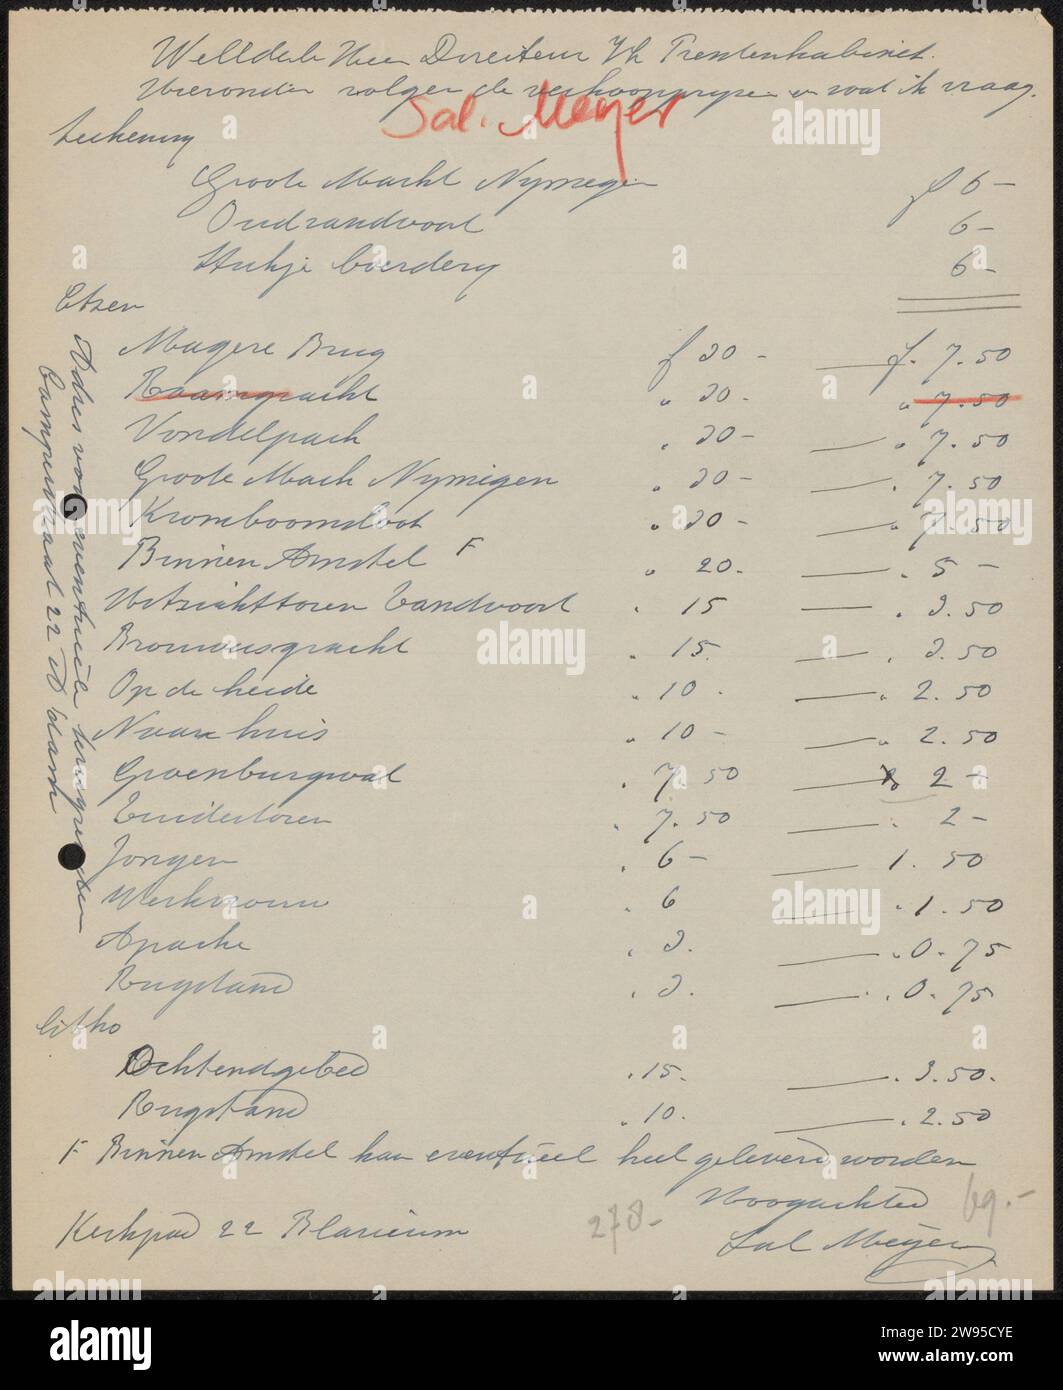 Weledele Heer Directeur Rk Prentenkabinet.
Hieronder volgen de verkoopprijzen en wat ik vraag.
Sal. Meyer
teekening
Groote Markt Nymegen f 6 —
Oud zandvoort 6 —
Stukje boerdery 6 —
Etsen
Magere Brug f 30 - — f. 7.50
Raamgracht " 30 - " 7.50
Vondelpark " 30 — — " 7.50
Groote Mark Nymigen " 30 — — " 7.50
Kromboomsloot " 30 — — " 7.50
Binnen Amstel F " 20. — " 5 —
Zandvoort " 15 — " 3.50
Brouwersgracht " 15. — " 3.50
Op de heide " 10. — " 2.50
Naar huis " 10 - — " 2.50
Groenburgwal " 7.50 — " 2 —
Zuidertoren " 7.50 — " 2 —
Jongen " 6 — — 1.50
Werkvrouw " 6 — " 1.50
Apache " 3. — " 0.75
Rustand " 3. — " 0.75
Litho
Ochtendgebed " 15. — " 3.50.
Rustand " 10. — " 2.50
F Binnen Amstel kan eventueel heel geleverd worden
Hoogachtend 69.-
Kerkpad 22 Blaricum 278-
Sal Meyer
Adres voor eventueele terugzenden
22 A'dam
alamy
Image ID: 2W95CYE
www.alamy.com